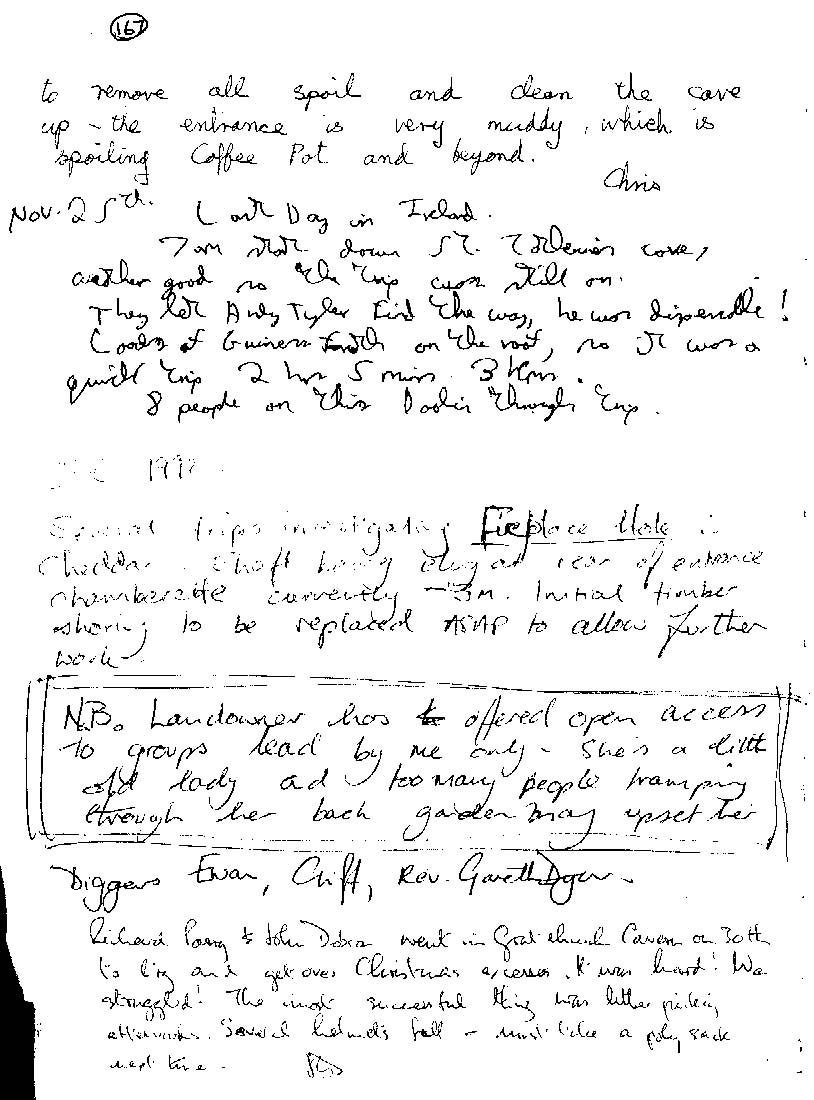 167
to remove all spoil and clean the cave
up - the entrance is very muddy, which is
spoiling Coffee Pot and beyond.
Chris
Nov. 25th. Last Day in Ireland.
7 am start down St. Catherines cave,
weather good so the trip was still on.
They let Andy Tyler find the way, he was dispensible!
Loads of Guiness on the roof, so it was a
quick trip 2 hrs 5 mins. 3 Kms.
8 people on this Doolin through trip.
1992
Several trips investigating Fireplace Hole in
Cheddar. Shaft being dug at rear of entrance
chamberette currently -3m. Initial timber
shoring to be replaced ASAP to allow further
work.
N.B. Landowner has offered open access
to groups lead by me only - she's a little
old lady ad too many people tramping
through her back garden may upset her
Diggers Ewan, Cliff, Rev. Gareth
Richard & John went in Goatchurch Cavern on 30th
to try and get over Christmas excesses. It was hard! We
struggled! The most successful thing was litter picking
afterwards. Several helmets full - must take a poly sack
next time.